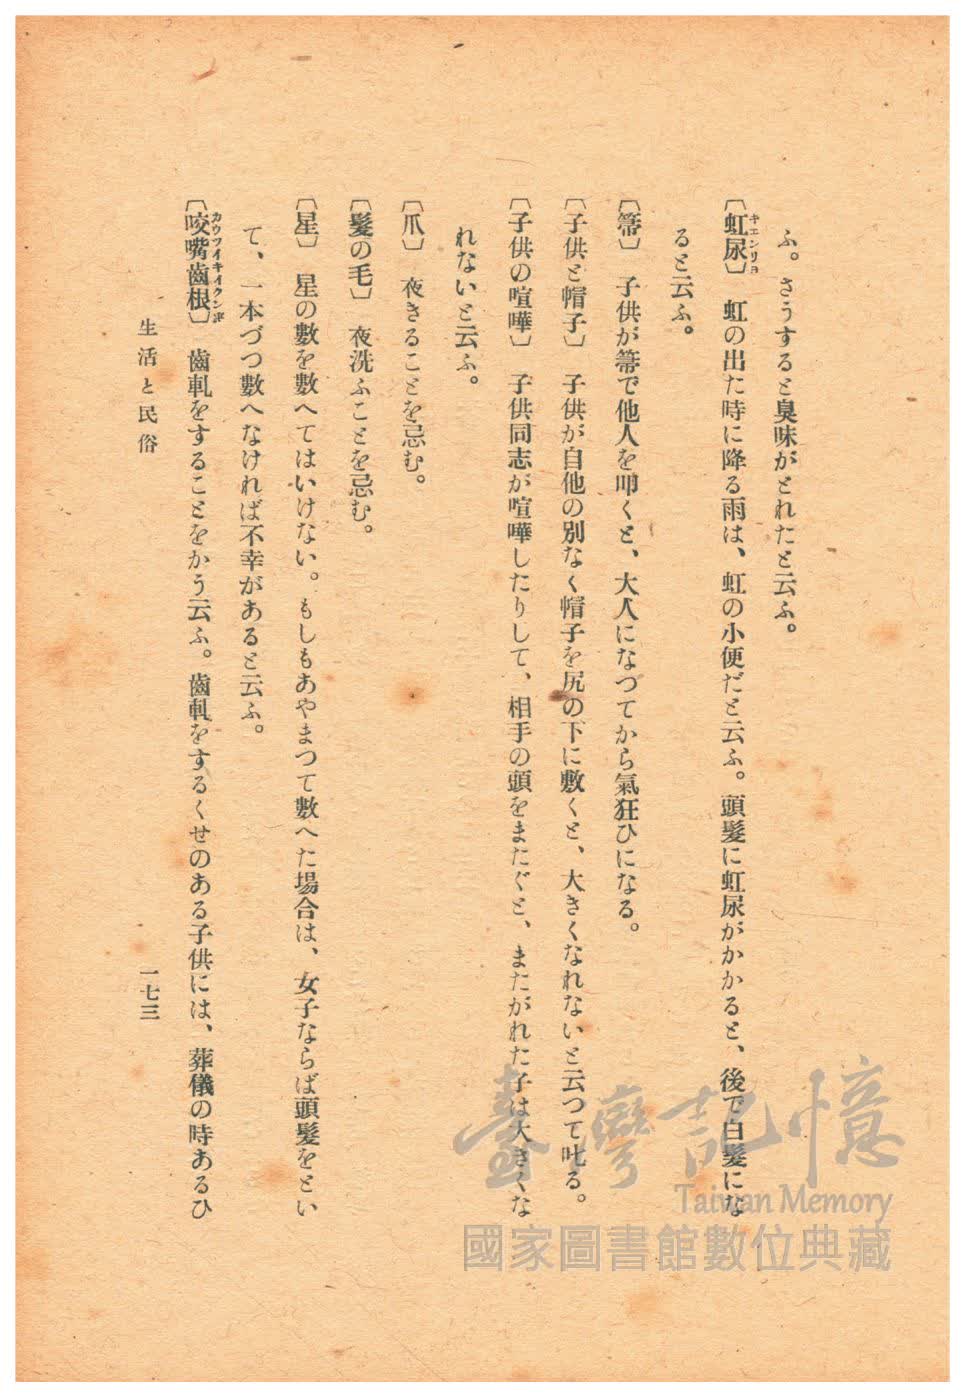 ふ。さうすると臭味がとれたと云ふ。
〔虹尿〕　虹の出た時に降る雨は、虹の小便だと云ふ。頭髮に虹尿がかかると、後で白髮にな
キエンリヨ
ると云ふ。
〔箒〕　子供が箒で他人を叩くと、大人になつてから氣狂ひになる。
〔子供と帽子〕　子供が自他の別なく帽子を尻の下に敷くと、大きくなれないと云つて叱る。
〔子供の喧嘩〕　子供同志が喧嘩したりして、相手の頭をまたぐと、またがれた子は大きくな
れないと云ふ。
〔爪〕　夜きることを忌む。
〔髮の毛〕　夜洗ふことを忌む。
〔星〕　星の數を數へてはいけない。もしもあやまつて數へた場合は、女子ならば頭髮をとい
て、一本づつ數へなければ不幸があると云ふ。
〔咬嘴齒根〕　齒軋をすることをかう云ふ。齒軋をするくせのある子供には、葬儀の時あるひ
カウツイキイクン
生活と民俗
一七三
臺灣記憶
Taiwan Memory
國家圖書館數位典藏